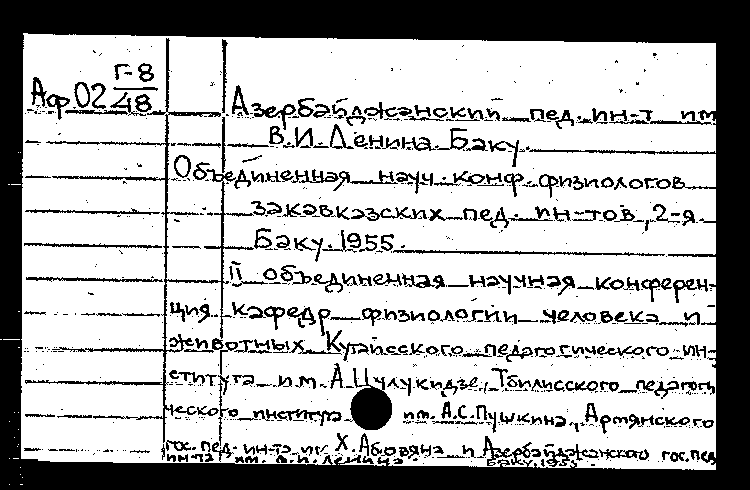 Аф02 Г-8/48
Азербайджанский пед. ин-т им
В.И.Ленина. Баку.
Объединенная науч. конф. физиологов
закавказских пед. ин-тов, 2-я.
Баку. 1955.
II объединенная научная конферен-
ция кафедр физиологии человека и
животных Кутаисского педагогического ин-
ститута им. А.Цулукидзе, Тбилисского педагоги
ческого института им. А.С.Пушкина, Армянского
гос. пед. ин-та им Х.Абовяна и Азербайджанского гос. пед
ин-та им. В.И. Ленина. Баку, 1955.